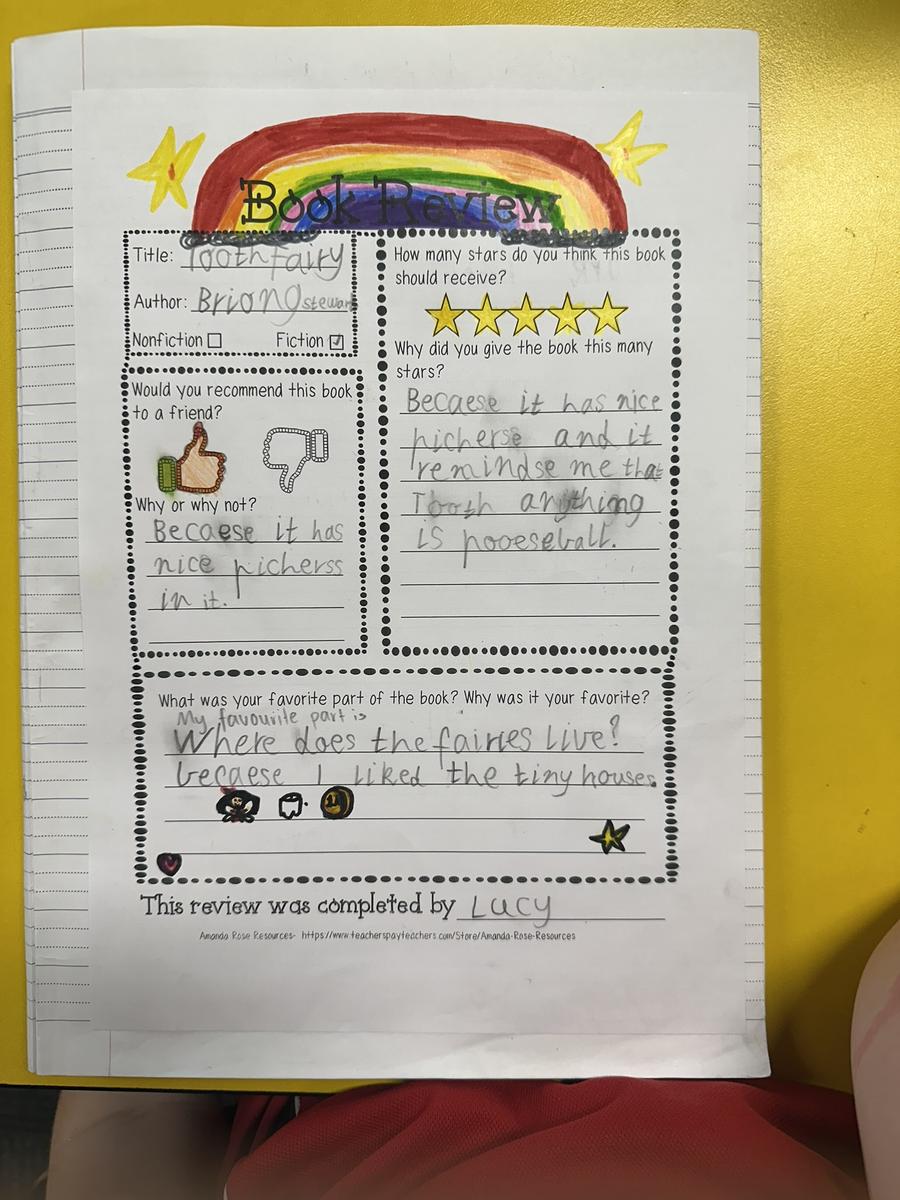 Book Review
Title: Toothfairy
Author: Briong stewart
Nonfiction
Fiction
Would you recommend this book
to a friend?
Why or why not?
Becaese it has
nice picherss
in it.
How many stars do you think this book
should receive?
Why did you give the book this many
stars?
Becaese it has nice
picherse and it
remindse me that
Tooth anything
is pooeseball.
What was your favorite part of the book? Why was it your favorite?
My favourite part is
Where does the fairies live?
becaese I liked the tiny houses.
This review was completed by Lucy
Amanda Rose Resources- https://www.teacherspayteachers.com/Store/Amanda-Rose-Resources